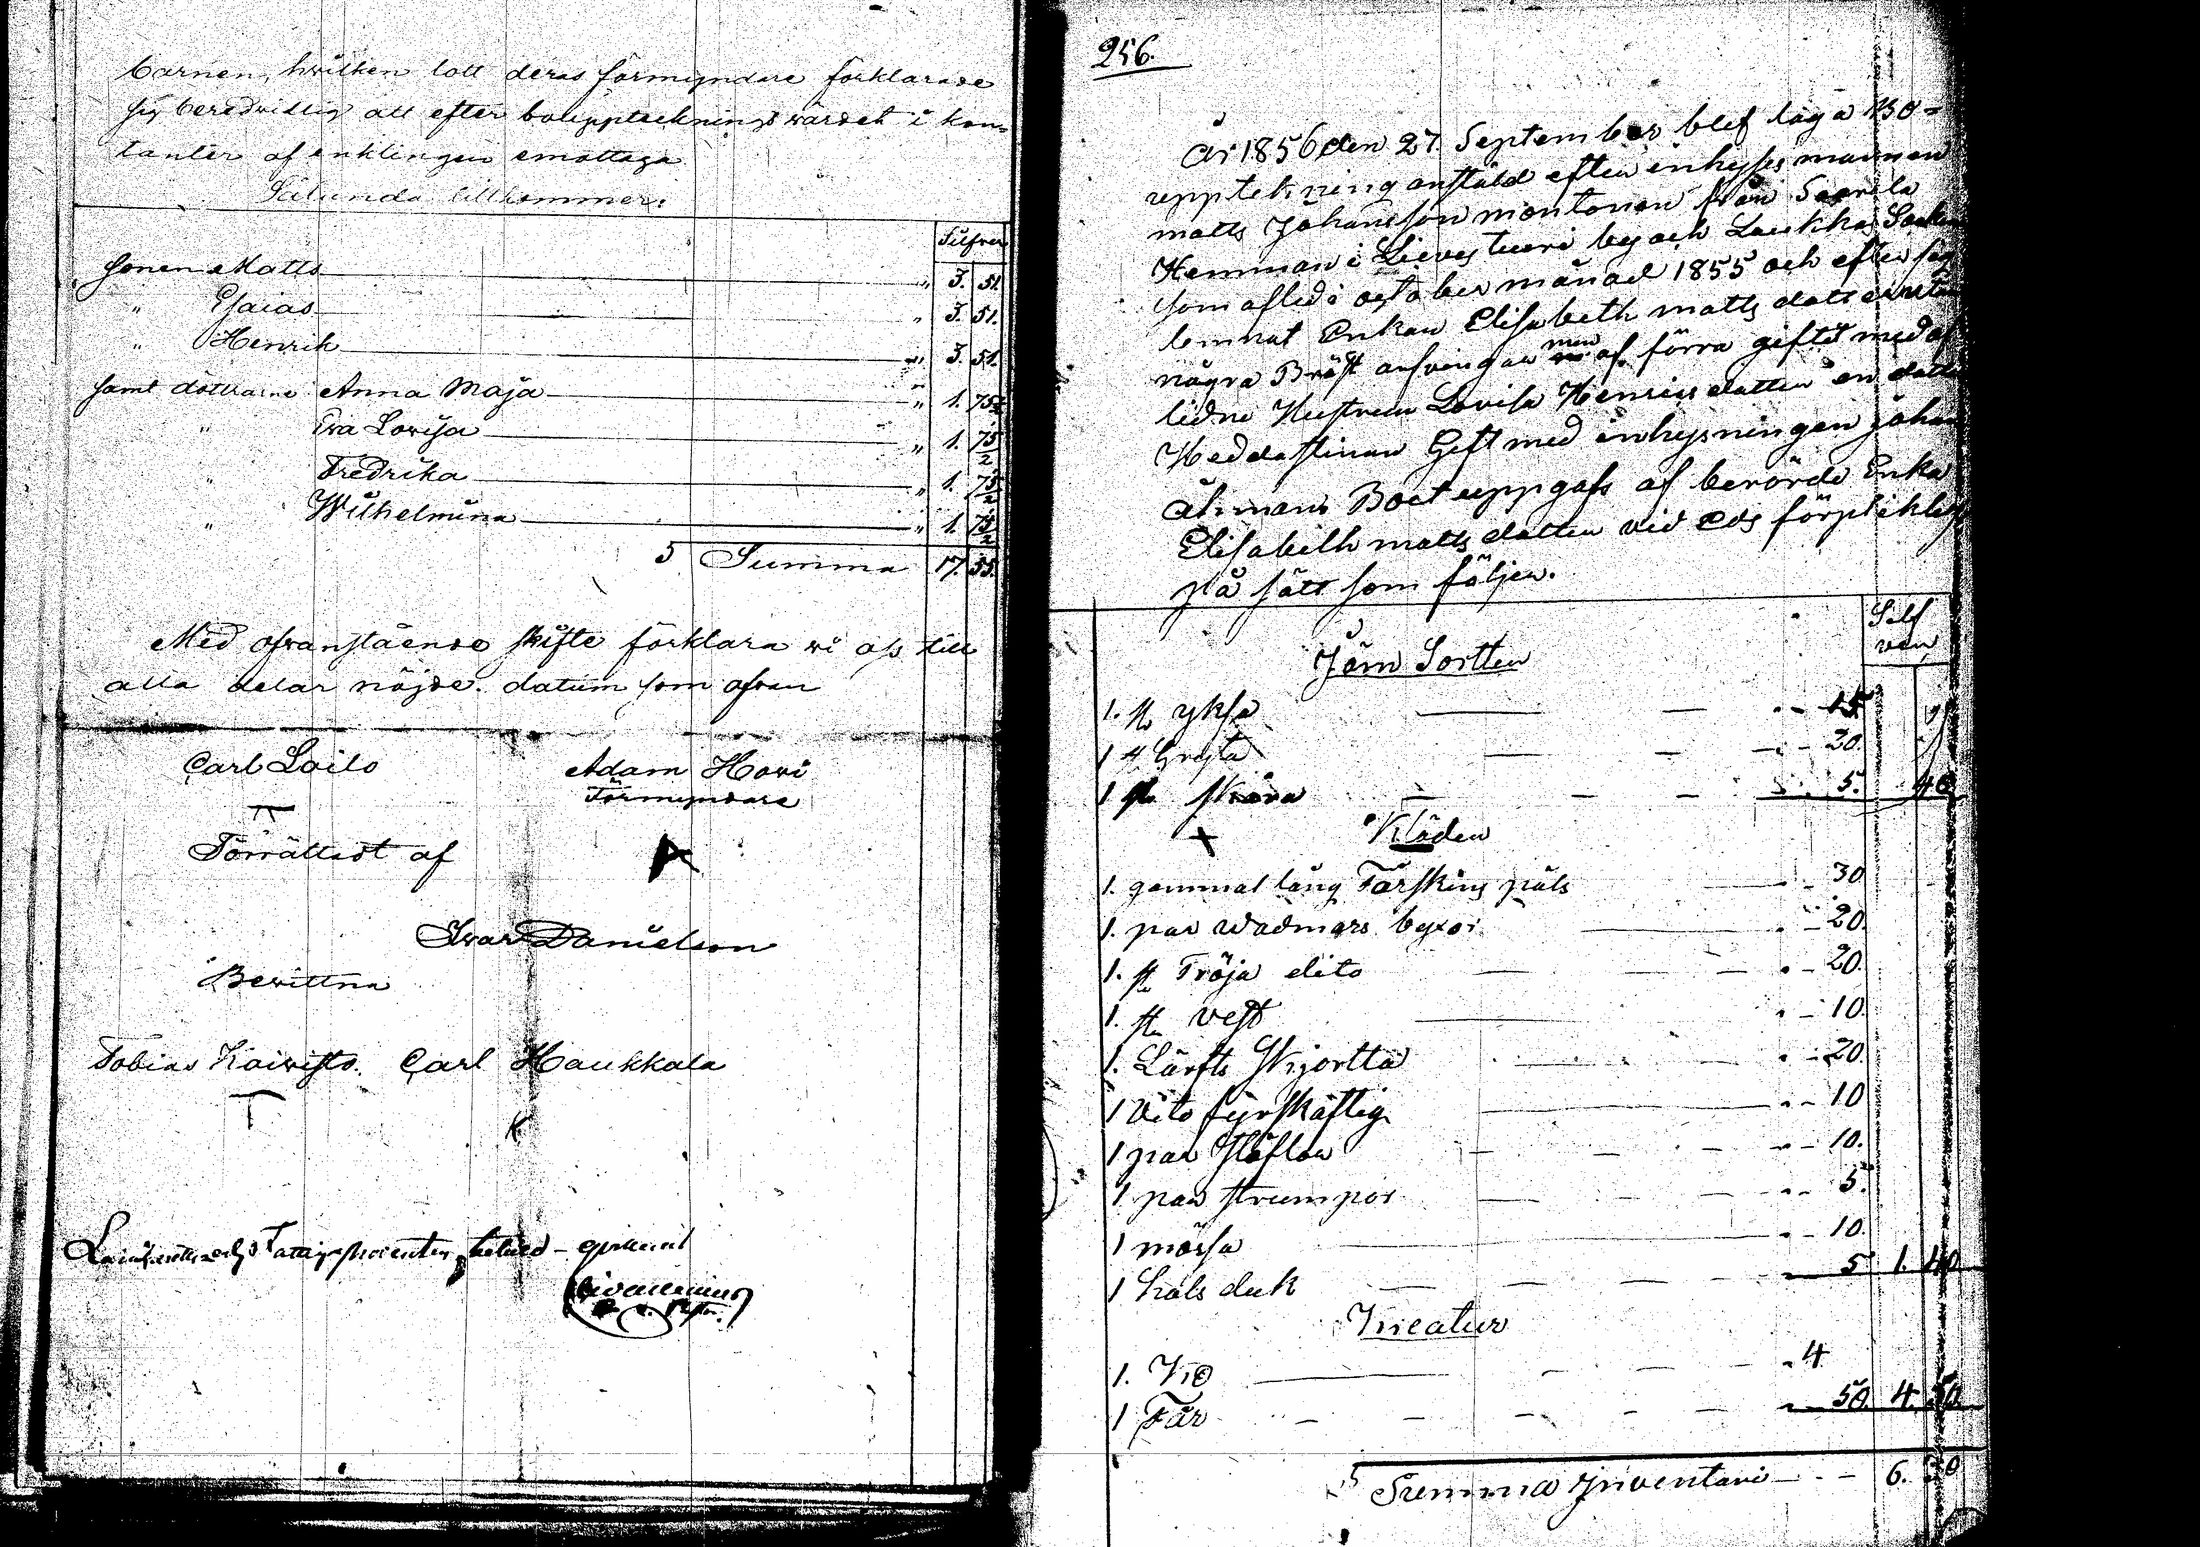 barnen, hvilken lott deras förmyndare förklarade
sig beredvillig att efter bouppteckningsvärdet i kon-
tanter af enklingen emottaga
Sålunda tillkommer:
Silfver
Sonen Matts " 3. 51.
" Esaias " 3. 51.
" Henrik " 3. 51.
samt döttrarne Anna Maja " 1. 75 1/2
" Eva Lovisa " 1. 75 1/2
" Fredrika " 1. 75 1/2
" Wilhelmina " 1. 75 1/2
Summa 17. 55.
Med ofvanstående skifte förklara wi oss till
alla delar nöjde. datum som ofvan
Carl Loilo Adam Howi
Förmyndare
Förrättadt af
Ivar Danielson
Bevittna
Tobias Koivisto. Carl Haukkala
T K
256.
År 1856 den 27 September blef laga Bo-
upptekning anstäld efter inhyses mannen
matts Johansson montonen från Saarela
Hemman i Lievestuori by och Laukkas Socken
som afled i october månad 1855 och efter sig
lemnat Enkan Elisabeth matts dotter utan
några Bröst arfvingar men af förra giftet med af
lidne Hustrun Lovisa Henrics dotter en dotter
Heddastinan Gift med inhysningen Johan
Åhman Boet uppgafs af berörde Enka
Elisabeth matts dotter vid eds förpliktelse
på sätt som följer.
Silf
ver
Järn Sorter
1. st yksa " - 15
1 st Gryta " - 20.
1 st skära " 5. 40
Kläder
1. gammal lång Fårskins päls - 30
1. par wadmars byxor " - 20.
1. st Tröja dito " - 20.
1. st vest " - 10.
1. Lärfts Skjorta " - 20.
1 dito fyrskäftig " - 10
1 par stöflar " - 10.
1 par strumpor " - 5.
1 mössa " - 10.
1 hals duk " - 5 1. 40
Kreatur
1. Ko " 4
1 Får " - 50. 4. 50.
Summa Inventari - - 6. 30